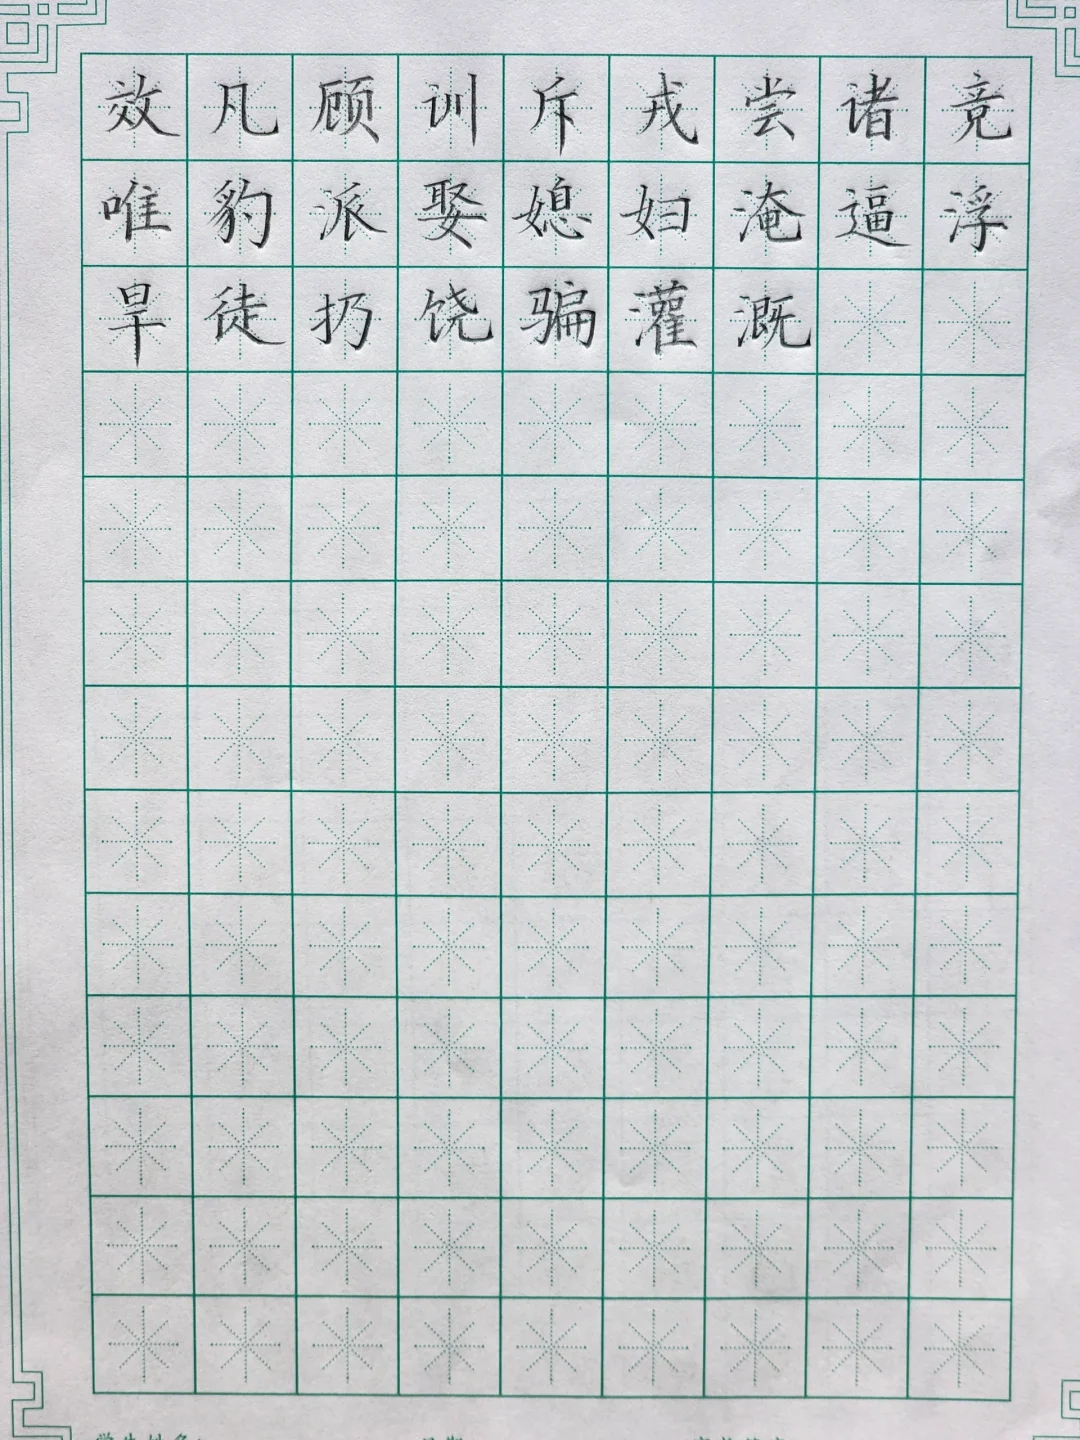 效凡顾训斥戎尝诸竟
唯豹派娶媳妇淹逼浮
旱徒扔饶骗灌溉